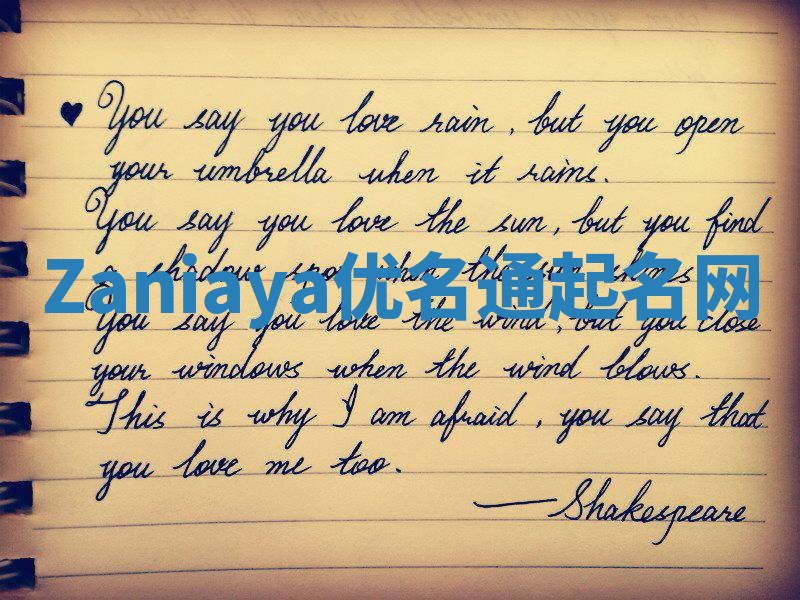 ♥ You say you love rain, but you open
your umbrella when it rains.
You say you love the sun, but you find
a shadow spot when the sun shines
Zaniaya优名通起名网
You say you love the wind, but you close
your windows when the wind blows.
This is why I am afraid, you say that
you love me too.
— Shakespeare